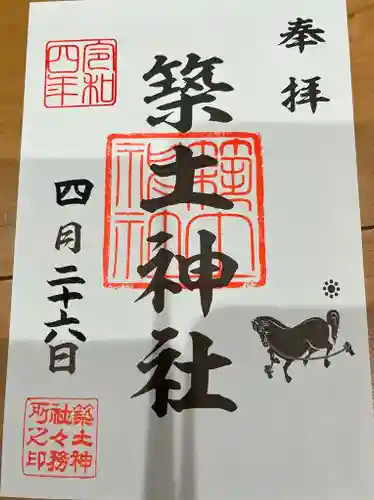 奉拝
築土神社
築土神社
令和四年
四月二十六日
築土神
社々務
所之印